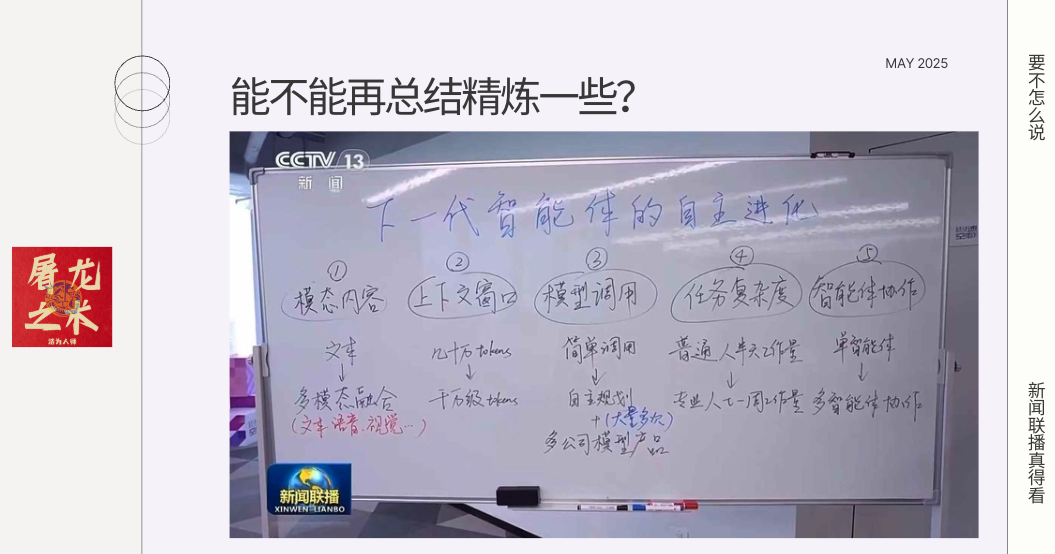 MAY 2025
能不能再总结精炼一些？
要不怎么说
新闻联播真得看
屠龙
之术
活为人师
CCTV 13
新闻
下一代智能体的自主进化
① ② ③ ④ ⑤
模态内容 上下文窗口 模型调用 任务复杂度 智能体协作
文本 几十万tokens 简单调用 普通人半天工作量 单智能体
↓ ↓ ↓ ↓ ↓
多模态融合 千万级tokens 自主规划 专业人士一周工作量 多智能体协作
(文本 语音、视觉…) +(大量多次)
多公司模型产品
新闻联播
XINWEN-LIANBO